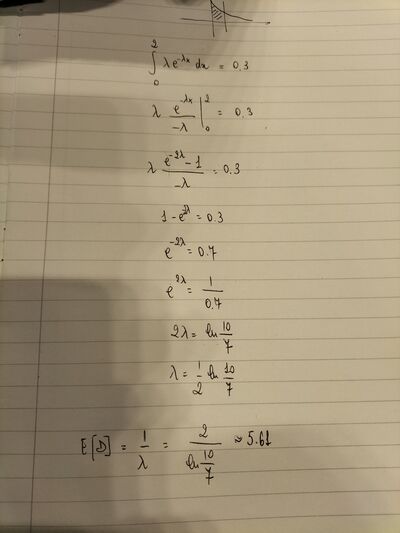 ∫₀² λe^{-λx} dx = 0.3
λ · e^{-λx}/-λ |₀² = 0.3
λ · (e^{-2λ} - 1)/-λ = 0.3
1 - e^{-2λ} = 0.3
e^{-2λ} = 0.7
e^{2λ} = 1/0.7
2λ = ln 10/7
λ = 1/2 ln 10/7
E[D] = 1/λ = 2/(ln 10/7) ≈ 5.61